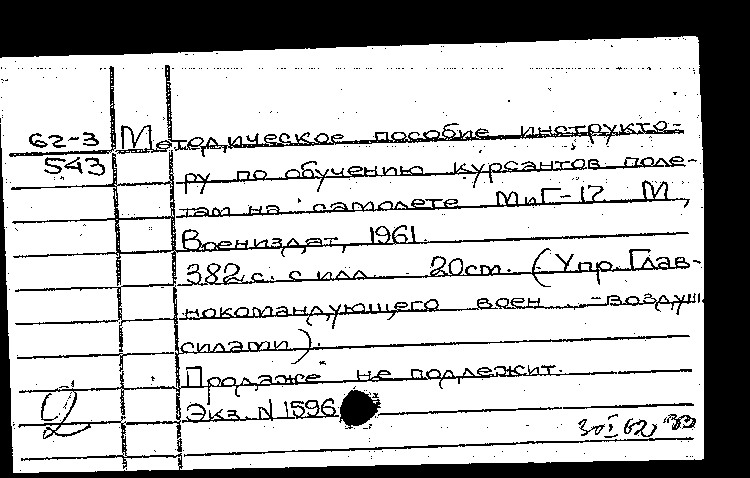 62-3 Методическое пособие инструкто-
543 ру по обучению курсантов поле-
там на самолете МиГ-17 М,
Воениздат, 1961.
382 с. с илл. 20 cm. (Упр. Глав-
нокомандующего воен. -воздуш.
силами).
Продаже не подлежит.
Экз. N 1596
2